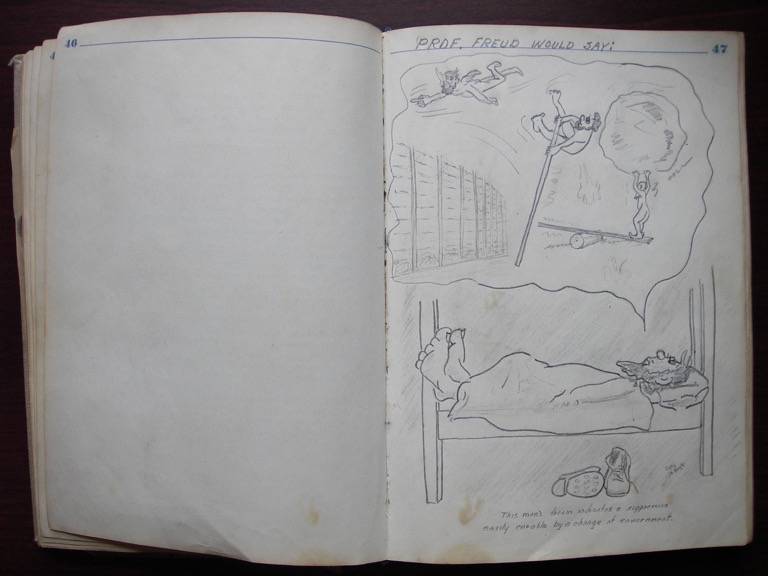 46
PROF. FREUD WOULD SAY:
47
This man's dream indicates a suppression
easily curable by a change of environment.